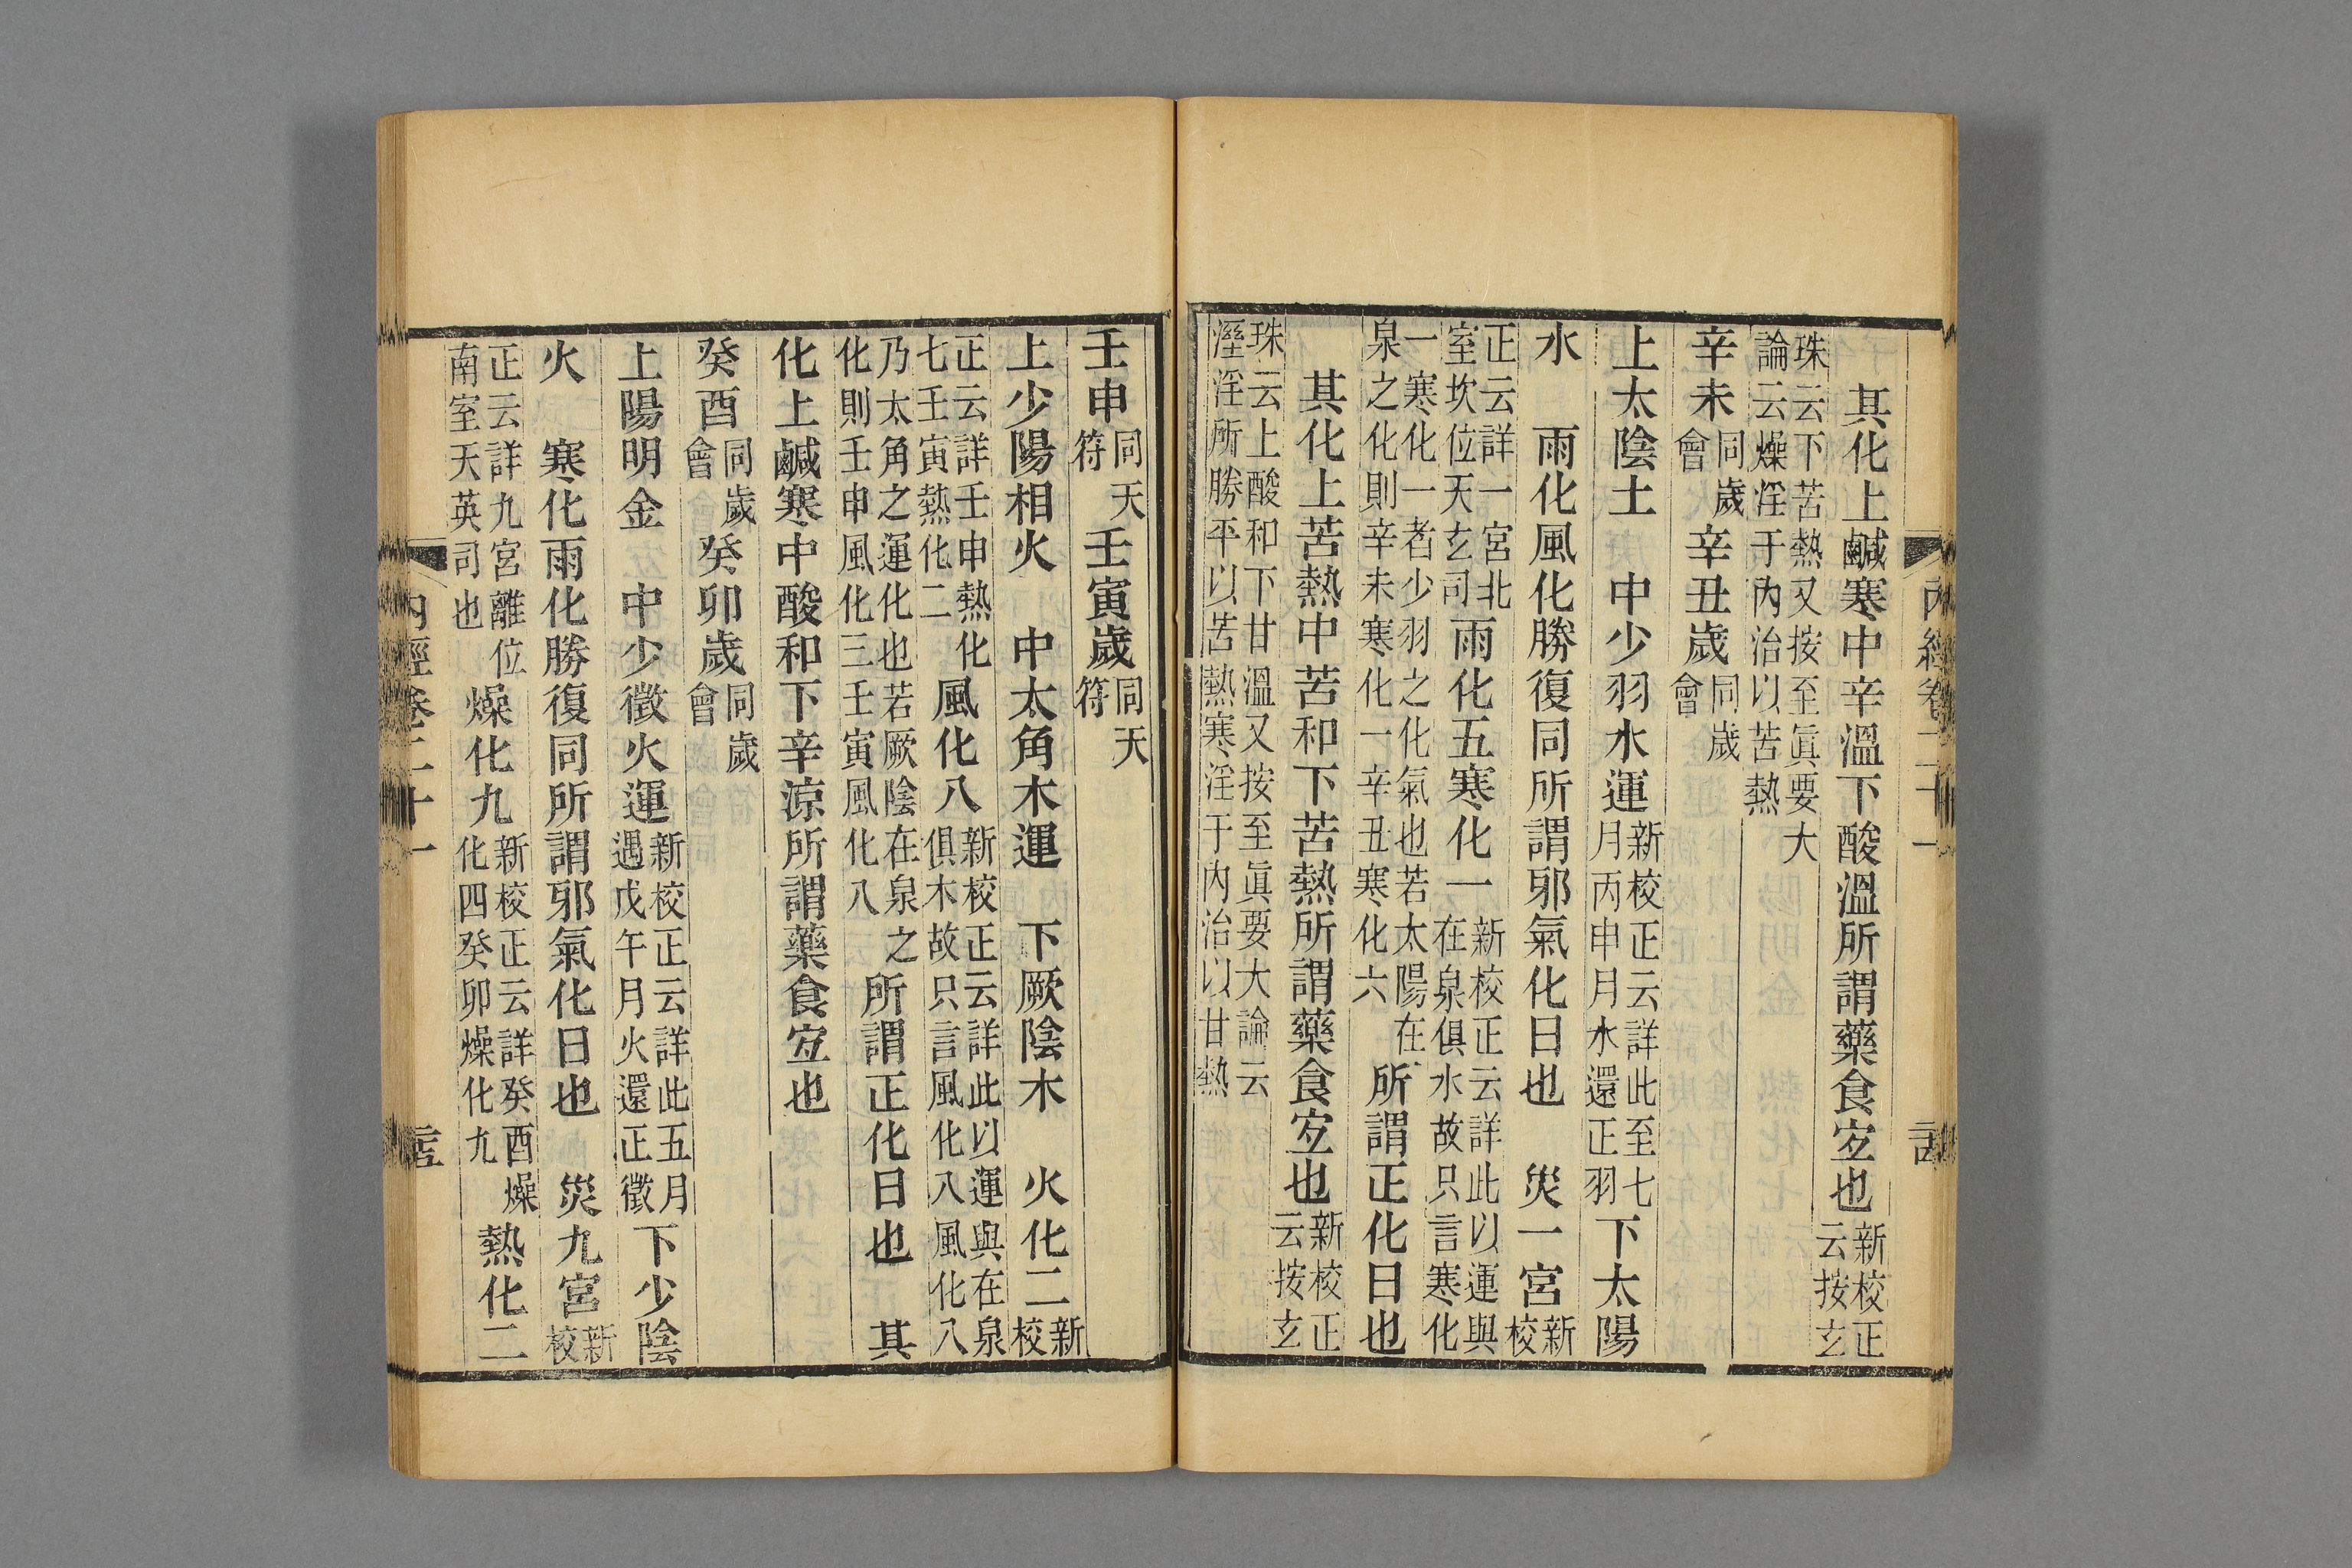 其化上鹹寒中辛溫下酸溫所謂藥食宐也新校正云按玄
珠云下苦熱又按至眞要大論云燥淫于內治以苦熱
辛未同歲會辛丑歲同歲會
上太陰土 中少羽水運新校正云詳此至七月丙申月水還正羽下太陽
水 雨化風化勝復同所謂邪氣化日也 災一宮新校
正云詳一宮北室坎位天玄司雨化五寒化一新校正云詳此以運與在泉俱水故只言寒化
一寒化一者少羽之化氣也若太陽在泉之化則辛未寒化一辛丑寒化六所謂正化日也
其化上苦熱中苦和下苦熱所謂藥食宐也新校正云按玄
珠云上酸和下甘溫又按至眞要大論云溼淫所勝平以苦熱寒淫于內治以甘熱
壬申同天符壬寅歲同天符
上少陽相火 中太角木運 下厥陰木 火化二新校
正云詳壬申熱化七壬寅熱化二風化八新校正云詳此以運與在泉俱木故只言風化八風化八
乃太角之運化也若厥陰在泉之化則壬申風化三壬寅風化八所謂正化日也 其
化上鹹寒中酸和下辛涼所謂藥食宐也
癸酉同歲會癸卯歲同歲會
上陽明金 中少徵火運新校正云詳此五月遇戊午月火還正徵下少陰
火 寒化雨化勝復同所謂邪氣化日也 災九宮新校
正云詳九宮離位南室天英司也燥化九新校正云詳癸酉燥化四癸卯燥化九熱化二
內經卷二十一